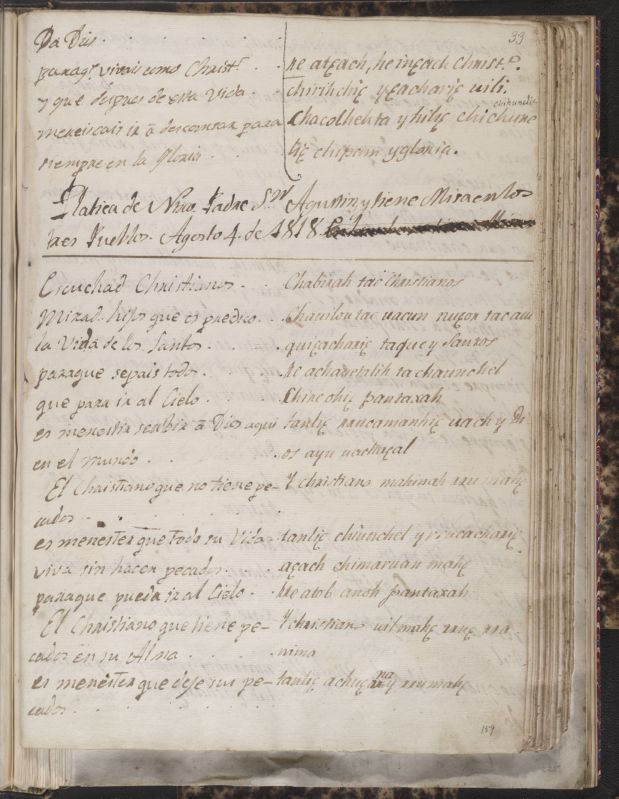 33
Da Dios.
paraq.e vivais como Christ.s he atꜫach, he inꜫach Christ.o
y que despues de esta Vida. chirihchiꜫ yꜫachariꜫ uili.
chihunelic
mereiscais ir â descansar para chacolhehta y hiliꜫ chichuno
siempre en la Gloria. liꜫ chipam ygloria.
Platica de Nro. Padre S.n Agustin y tiene Miraculos
Agosto 4. de 1818
Escuchad Christianos. Chabirah tac Christianos
Mirad hijos que os predico. Chauilou tac uacun nuꜫor tac auu
la Vida de los Santos. quiꜫachariꜫ taque y Santos
paraque sepais todos. he achauetalih ta chaunchel
que para ir al Cielo. Chire ohiꜫ pantaxah
es menester servir â Dios aqui tanliꜫ uach y Di
en el mundo. os ayu uachuꜫal
El Christiano que no tiene pe- Y christiano mahinah rru mahꜫ
cados.
es menester que todo su Vida. tanliꜫ chiunchel y rruꜫachariꜫ
viva sin hacer pecados. aꜫach chimaruan mahꜫ
paraque pueda ir al Cielo. He atob anoh pantaxah
El Christiano que tiene pe- Y christiano uilmahꜫ rruꜫ rra
cados en su Alma. nima
es menester que deje sus pe- tanliꜫ achuꜫ y rru mahꜫ
cados.
159